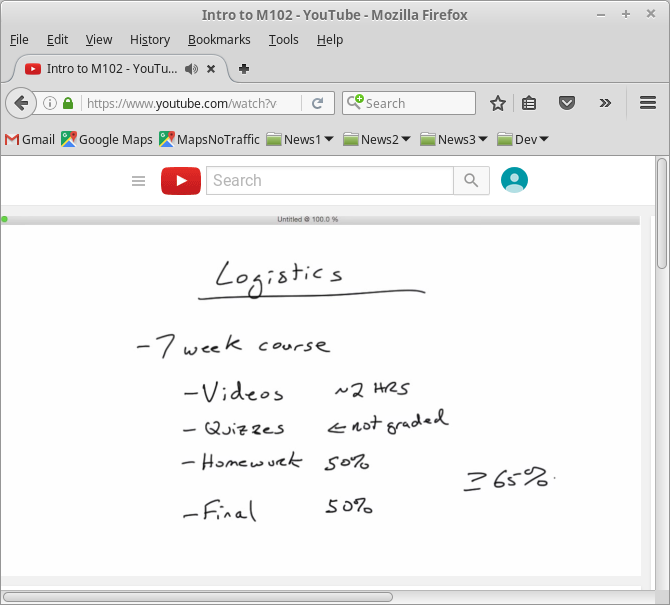 Intro to M102 - YouTube - Mozilla Firefox
File Edit View History Bookmarks Tools Help
Intro to M102 - YouTu...
https://www.youtube.com/watch?v
Search
Gmail Google Maps MapsNoTraffic News1 News2 News3 Dev
Search
Untitled @ 100.0 %
Logistics
- 7 week course
- Videos ~2 HRS
- Quizzes ← not graded
- Homework 50%
≥ 65%
- Final 50%